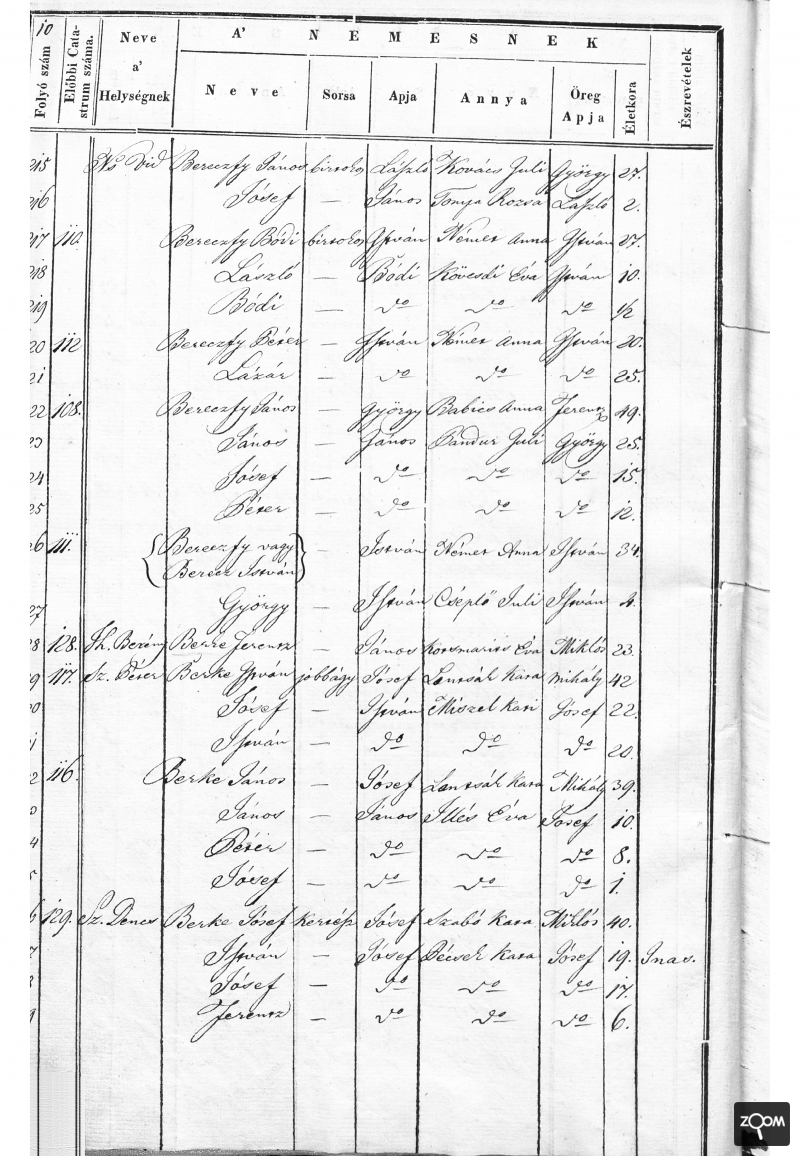 10
A' NEMESNEK
Folyó szám | Előbbi Catastrum száma. | Neve a' Helységnek | Neve | Sorsa | Apja | Annya | Öreg Apja | Életkora | Észrevételek
215 Ns Vid Bereczfy János birtokos László Kovács Juli György 27.
216 Jósef — János Tomja Rozsa László 2.
217 110. Bereczfy Bódi birtokos István Német Anna István 27.
218 László — Bódi Kövesdi Éva István 10.
219 Bódi — do do do 1/2
20 112 Bereczfy Péter — István Német Anna István 20.
21 Lázár — do do do 25.
22 108. Bereczfy János — György Babics Anna Ferencz 49.
23 János — János Bandur Juli György 25.
24 Jósef — do do do 15.
25 Péter — do do do 12.
26 111. Bereczfy vagy Berecz István — István Német Anna István 34.
27 György — István Cséplő Juli István 4.
28 128. Berke Ferencz — János Éva Miklós 23.
9 117. Sz. Péter Berke István jobbágy Jósef Kara Mihály 42
0 Jósef — István Miszel Kari Jósef 22.
1 István — do do do 20.
2 116. Berke János — Jósef Kara Mihály 39.
3 János — János Illés Éva Jósef 10.
4 Péter — do do do 8.
5 Jósef — do do do 1.
6 129. Sz. Denes Berke Jósef Jósef Szabó Kara Miklós 40.
7 István — Jósef Pécsek Kara Jósef 19. Inas.
8 Jósef — do do do 17.
9 Ferencz — do do do 6.
ZOOM